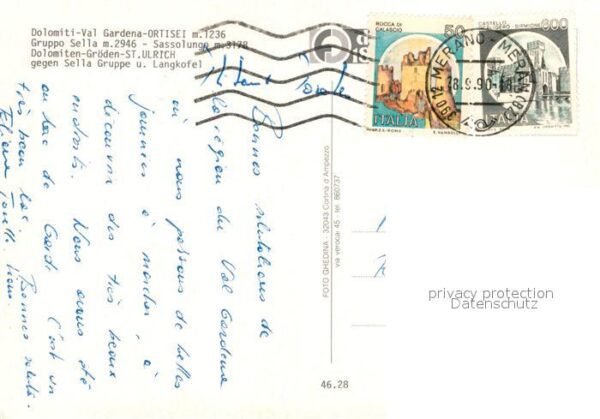 Dolomiti-Val Gardena-ORTISEI m.1236
Gruppo Sella m.2946 - Sassolungo m.3178
Dolomiten-Gröden-ST.ULRICH
gegen Sella Gruppe u. Langkofel
ROCCA DI CALASCIO
50
ITALIA
CASTELLO
600
ITALIA
39012 MERANO-MERAN (BZ)
18.9.90
Bonnes salutations de
la région du Val Gardena
où nous passons de belles
journées à marcher, à
découvrir des très beaux
endroits. Nous avons été
au lac de Garde c'est un
très beau lac.
Bonnes
FOTO GHEDINA - 32043 Cortina d'Ampezzo
via verocai 45 tel. 860737
46.28
privacy protection
Datenschutz